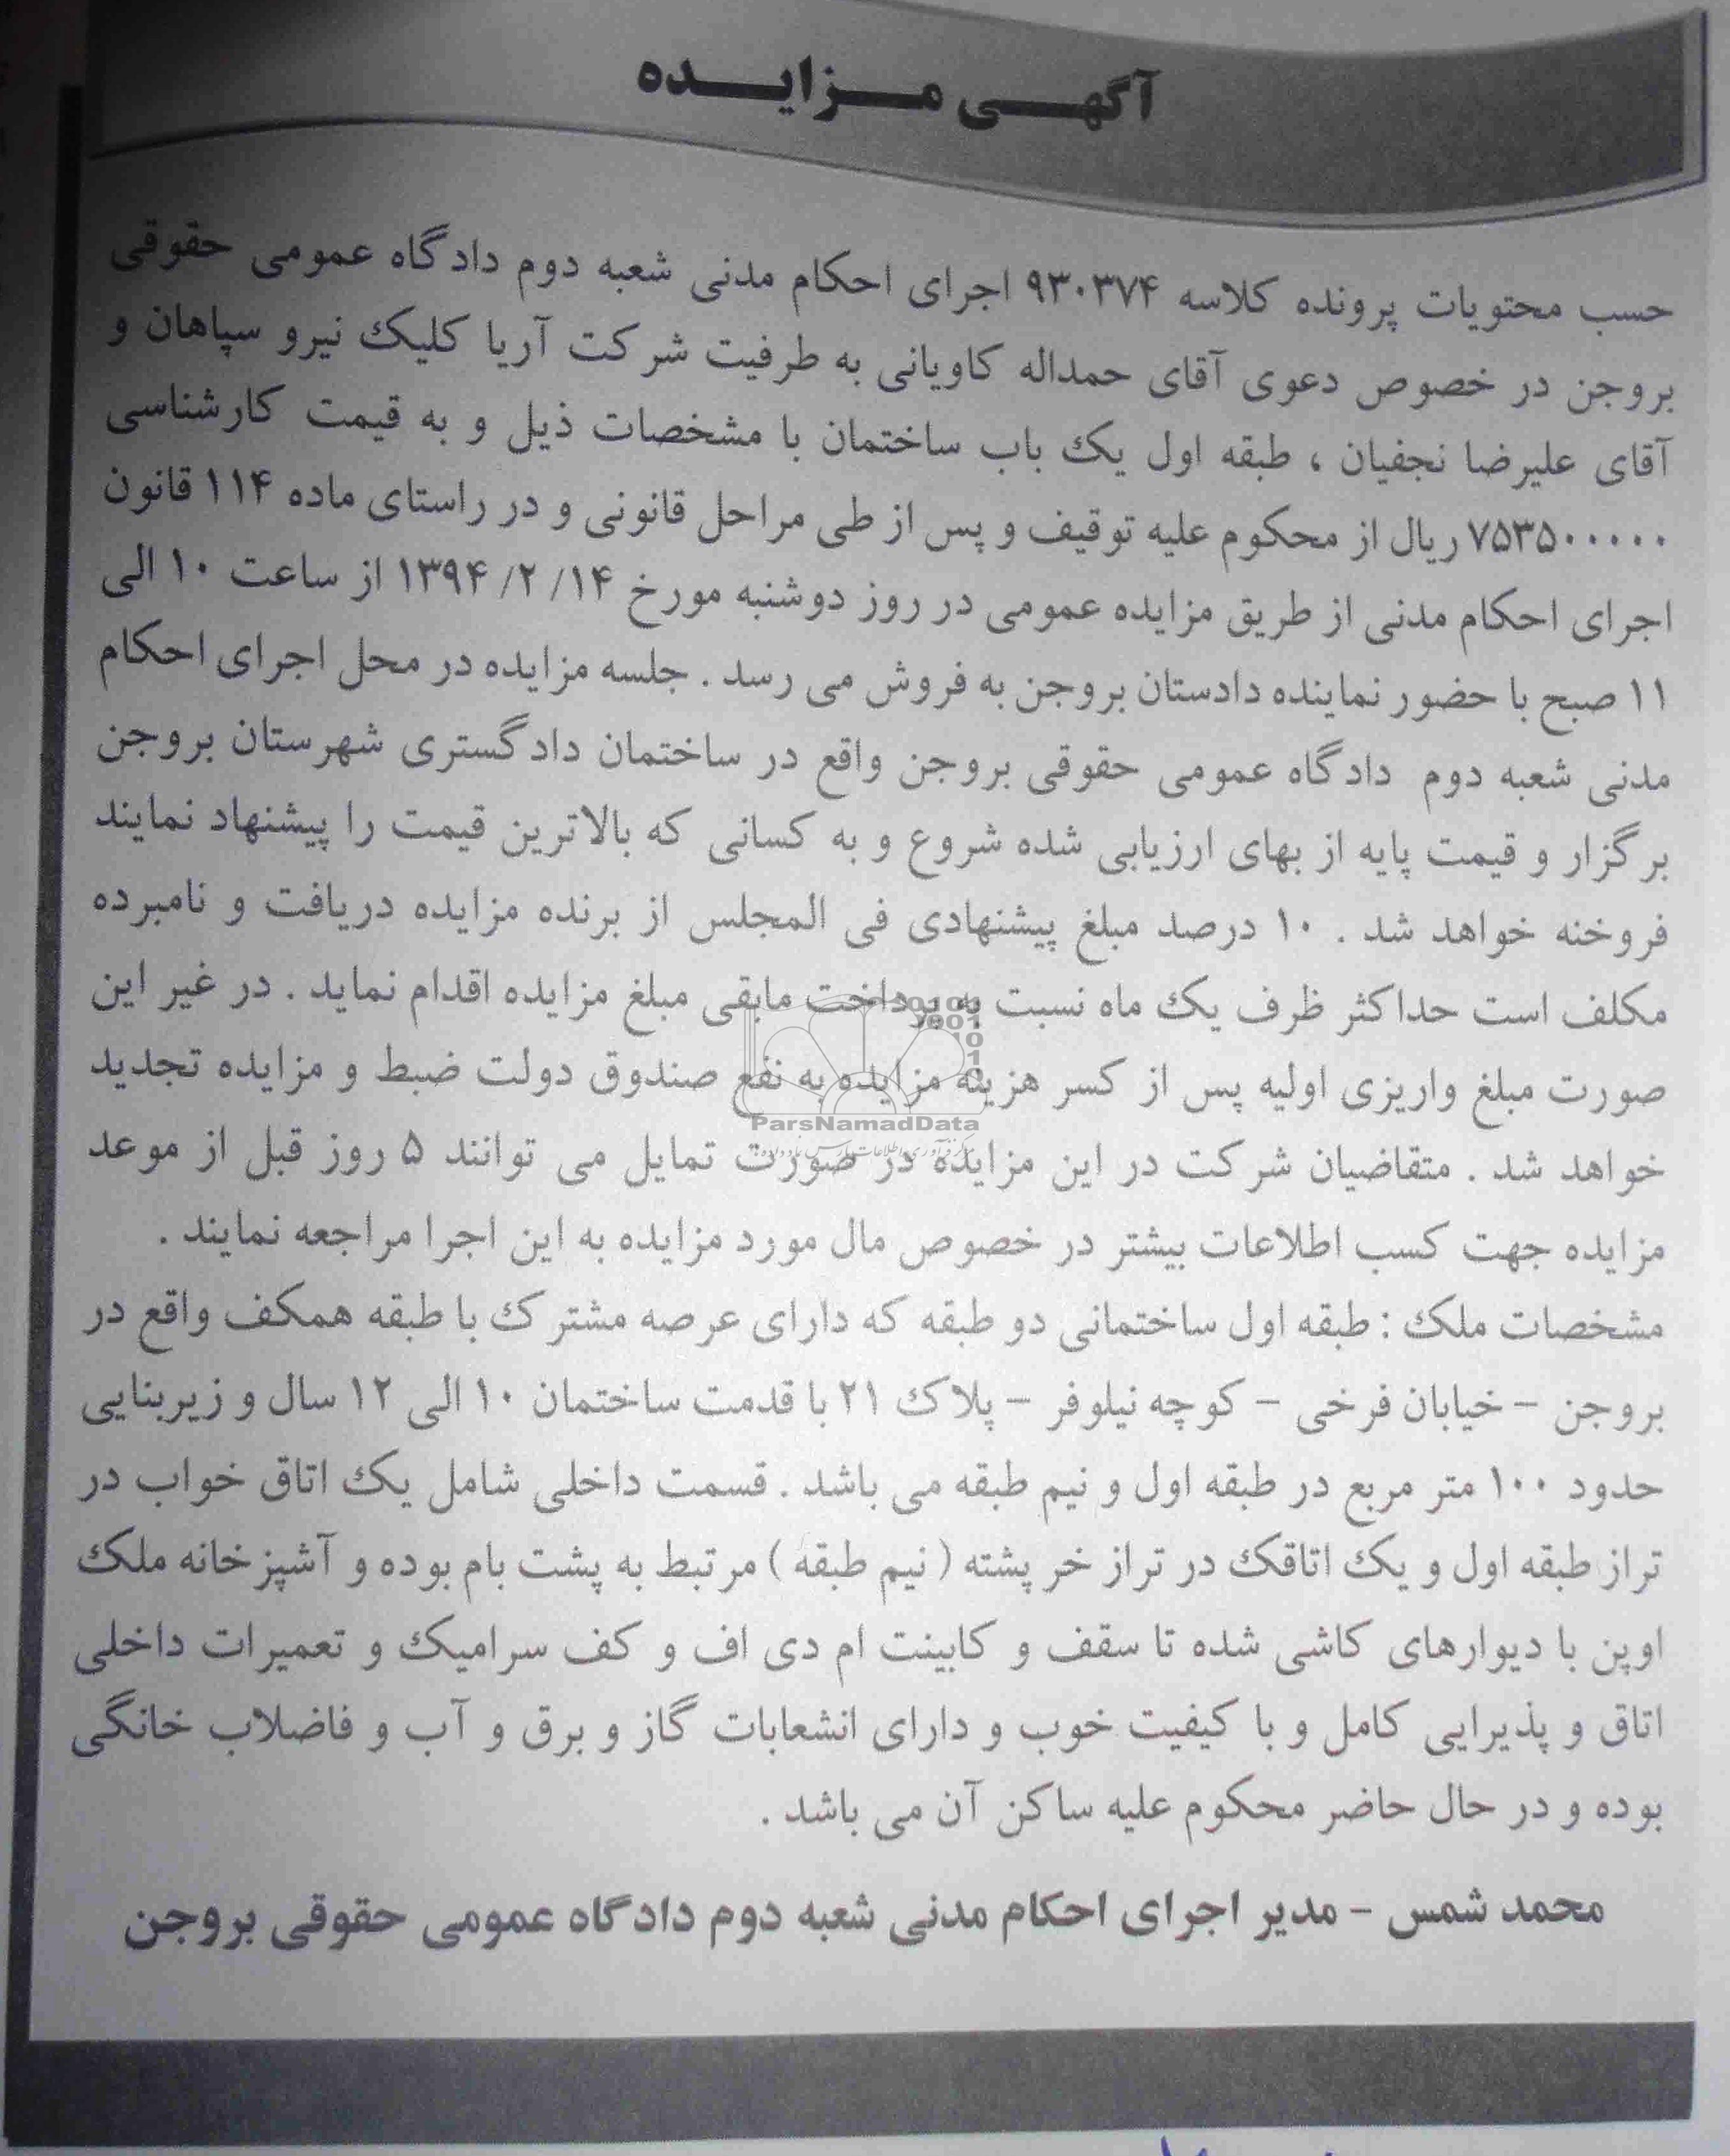 آگهی مزایده
حسب محتویات پرونده کلاسه ۹۳۰۳۷۴ اجرای احکام مدنی شعبه دوم دادگاه عمومی حقوقی
بروجن در خصوص دعوی آقای حمداله کاویانی به طرفیت شرکت آریا کلیک نیرو سپاهان و
آقای علیرضا نجفیان ، طبقه اول یک باب ساختمان با مشخصات ذیل و به قیمت کارشناسی
۷۵۳۵۰۰۰۰۰ ریال از محکوم علیه توقیف و پس از طی مراحل قانونی و در راستای ماده ۱۱۴ قانون
اجرای احکام مدنی از طریق مزایده عمومی در روز دوشنبه مورخ ۱۳۹۴/۲/۱۴ از ساعت ۱۰ الی
۱۱ صبح با حضور نماینده دادستان بروجن به فروش می رسد . جلسه مزایده در محل اجرای احکام
مدنی شعبه دوم دادگاه عمومی حقوقی بروجن واقع در ساختمان دادگستری شهرستان بروجن
برگزار و قیمت پایه از بهای ارزیابی شده شروع و به کسانی که بالاترین قیمت را پیشنهاد نمایند
فروخنه خواهد شد . ۱۰ درصد مبلغ پیشنهادی فی المجلس از برنده مزایده دریافت و نامبرده
مکلف است حداکثر ظرف یک ماه نسبت به پرداخت مابقی مبلغ مزایده اقدام نماید . در غیر این
صورت مبلغ واریزی اولیه پس از کسر هزینه مزایده به نفع صندوق دولت ضبط و مزایده تجدید
ParsNamadData
خواهد شد . متقاضیان شرکت در این مزایده در صورت تمایل می توانند ۵ روز قبل از موعد
مزایده جهت کسب اطلاعات بیشتر در خصوص مال مورد مزایده به این اجرا مراجعه نمایند .
مشخصات ملک : طبقه اول ساختمانی دو طبقه که دارای عرصه مشترک با طبقه همکف واقع در
بروجن – خیابان فرخی – کوچه نیلوفر – پلاک ۲۱ با قدمت ساختمان ۱۰ الی ۱۲ سال و زیربنایی
حدود ۱۰۰ متر مربع در طبقه اول و نیم طبقه می باشد . قسمت داخلی شامل یک اتاق خواب در
تراز طبقه اول و یک اتاقک در تراز خر پشته ( نیم طبقه ) مرتبط به پشت بام بوده و آشپزخانه ملک
اوپن با دیوارهای کاشی شده تا سقف و کابینت ام دی اف و کف سرامیک و تعمیرات داخلی
اتاق و پذیرایی کامل و با کیفیت خوب و دارای انشعابات گاز و برق و آب و فاضلاب خانگی
بوده و در حال حاضر محکوم علیه ساکن آن می باشد .
محمد شمس – مدیر اجرای احکام مدنی شعبه دوم دادگاه عمومی حقوقی بروجن